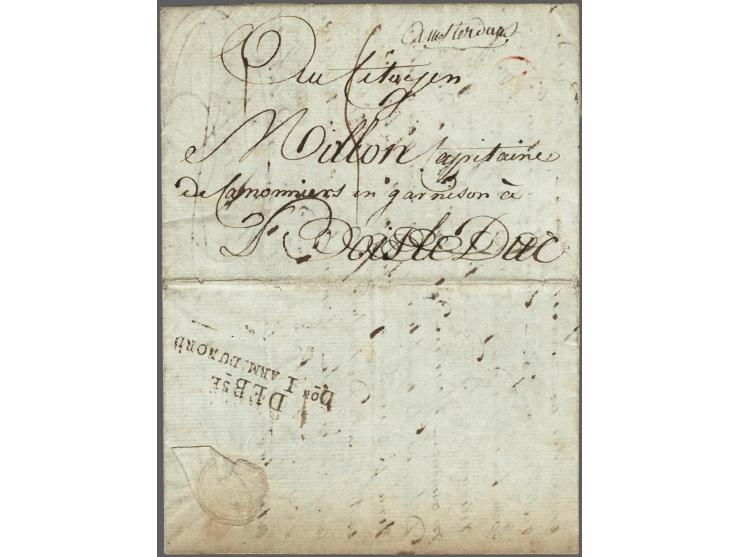 Amsterdam
Au Citoyen
Millon Capitaine
de Canonniers en garnison à
Bois le Duc
DEB SÉ
Don I ARM. DU NORD